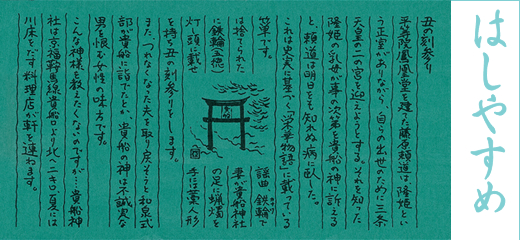 はしやすめ
丑の刻参り
平等院鳳凰堂を建てた藤原頼道は隆姫とい
う正室がありながら、自らの出世のために三条
天皇の二の宮を迎えようとする。それを知った
隆姫の乳母が事の次第を貴船の神に訴える
と、頼道は明日をも知れぬ病に臥した。
これは史実に基づく「栄華物語」に載っている
です。 謡曲「鉄輪」で
は捨てられた 妻が貴船神社
に鉄輪(五徳) の足に蝋燭を
灯し頭に載せ 手に藁人形
を持ち丑の刻参りをします。
また、つれなくなった夫を取り戻そうと和泉式
部が貴船に詣でたとか、貴船の神は不誠実な
男を恨む女性の味方です。
こんな神様を教えたくないのですが…貴船神
社は京福鞍馬線貴船口より北へ二キロ夏には
川床をだす料理店が軒を連ねます。